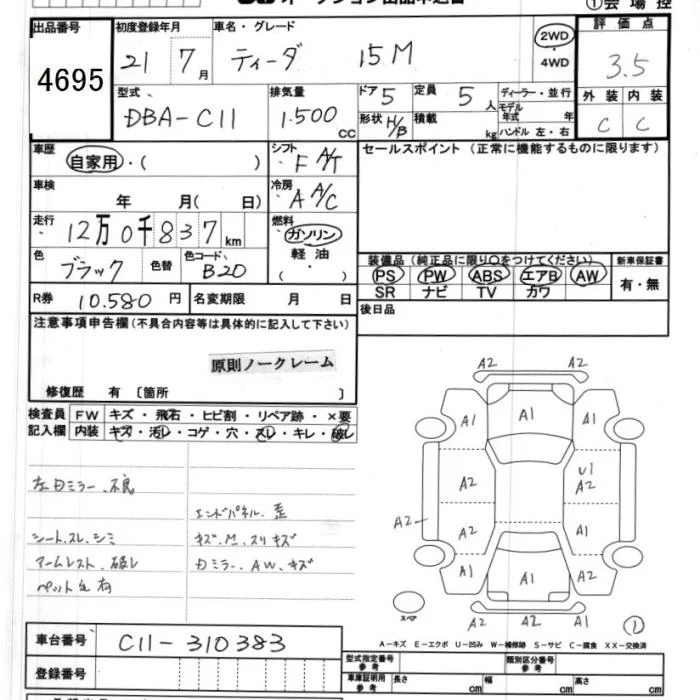 ①会場控
出品番号
4695
初度登録年月
21 7月
車名・グレード
ティーダ 15M
2WD
・4WD
評価点
3.5
外装 内装
C C
型式
DBA-C11
排気量
1.500 CC
ドア 5
形状 H/B
定員 5人
積載 kg
ディーラー・並行
モデル
年式 年
ハンドル 左・右
車歴
自家用・( )
シフト
F A/T
セールスポイント(正常に機能するものに限ります)
車検
年 月( 日)
冷房
A A/C
走行
12万0千837km
燃料
ガソリン
軽油
・( )
色
ブラック
色替
色コード
B20
装備品(純正品に限り○をつけてください)
PS PW ABS エアB AW
SR ナビ TV カワ
新車保証書
有・無
R券 10.580円
名変期限 月 日
後日品
注意事項申告欄(不具合内容等は具体的に記入して下さい)
原則ノークレーム
修復歴 有〔箇所 〕
検査員
記入欄
FW キズ・飛石・ヒビ割・リペア跡・×要
内装 キズ・汚レ・コゲ・穴・スレ・キレ・破レ
左Dミラー.不良
エンドパネル.歪
シート.スレ.シミ
キズ.M.スリキズ
アームレスト.破レ
Dミラー.AW.キズ
ペット毛有
A2 A2
A1 A1 A1
A2 U1
A2
A2 A2 A1
A1 A1 A2
A2 A2 A2
スペア
①
A-キズ E-エクボ U-凹み W-補修跡 S-サビ C-腐食 XX-交換済
車台番号 C11-310383
登録番号
型式指定番号
参考
類別区分番号
参考
車庫証明用
参考
長さ cm 幅 cm 高さ cm